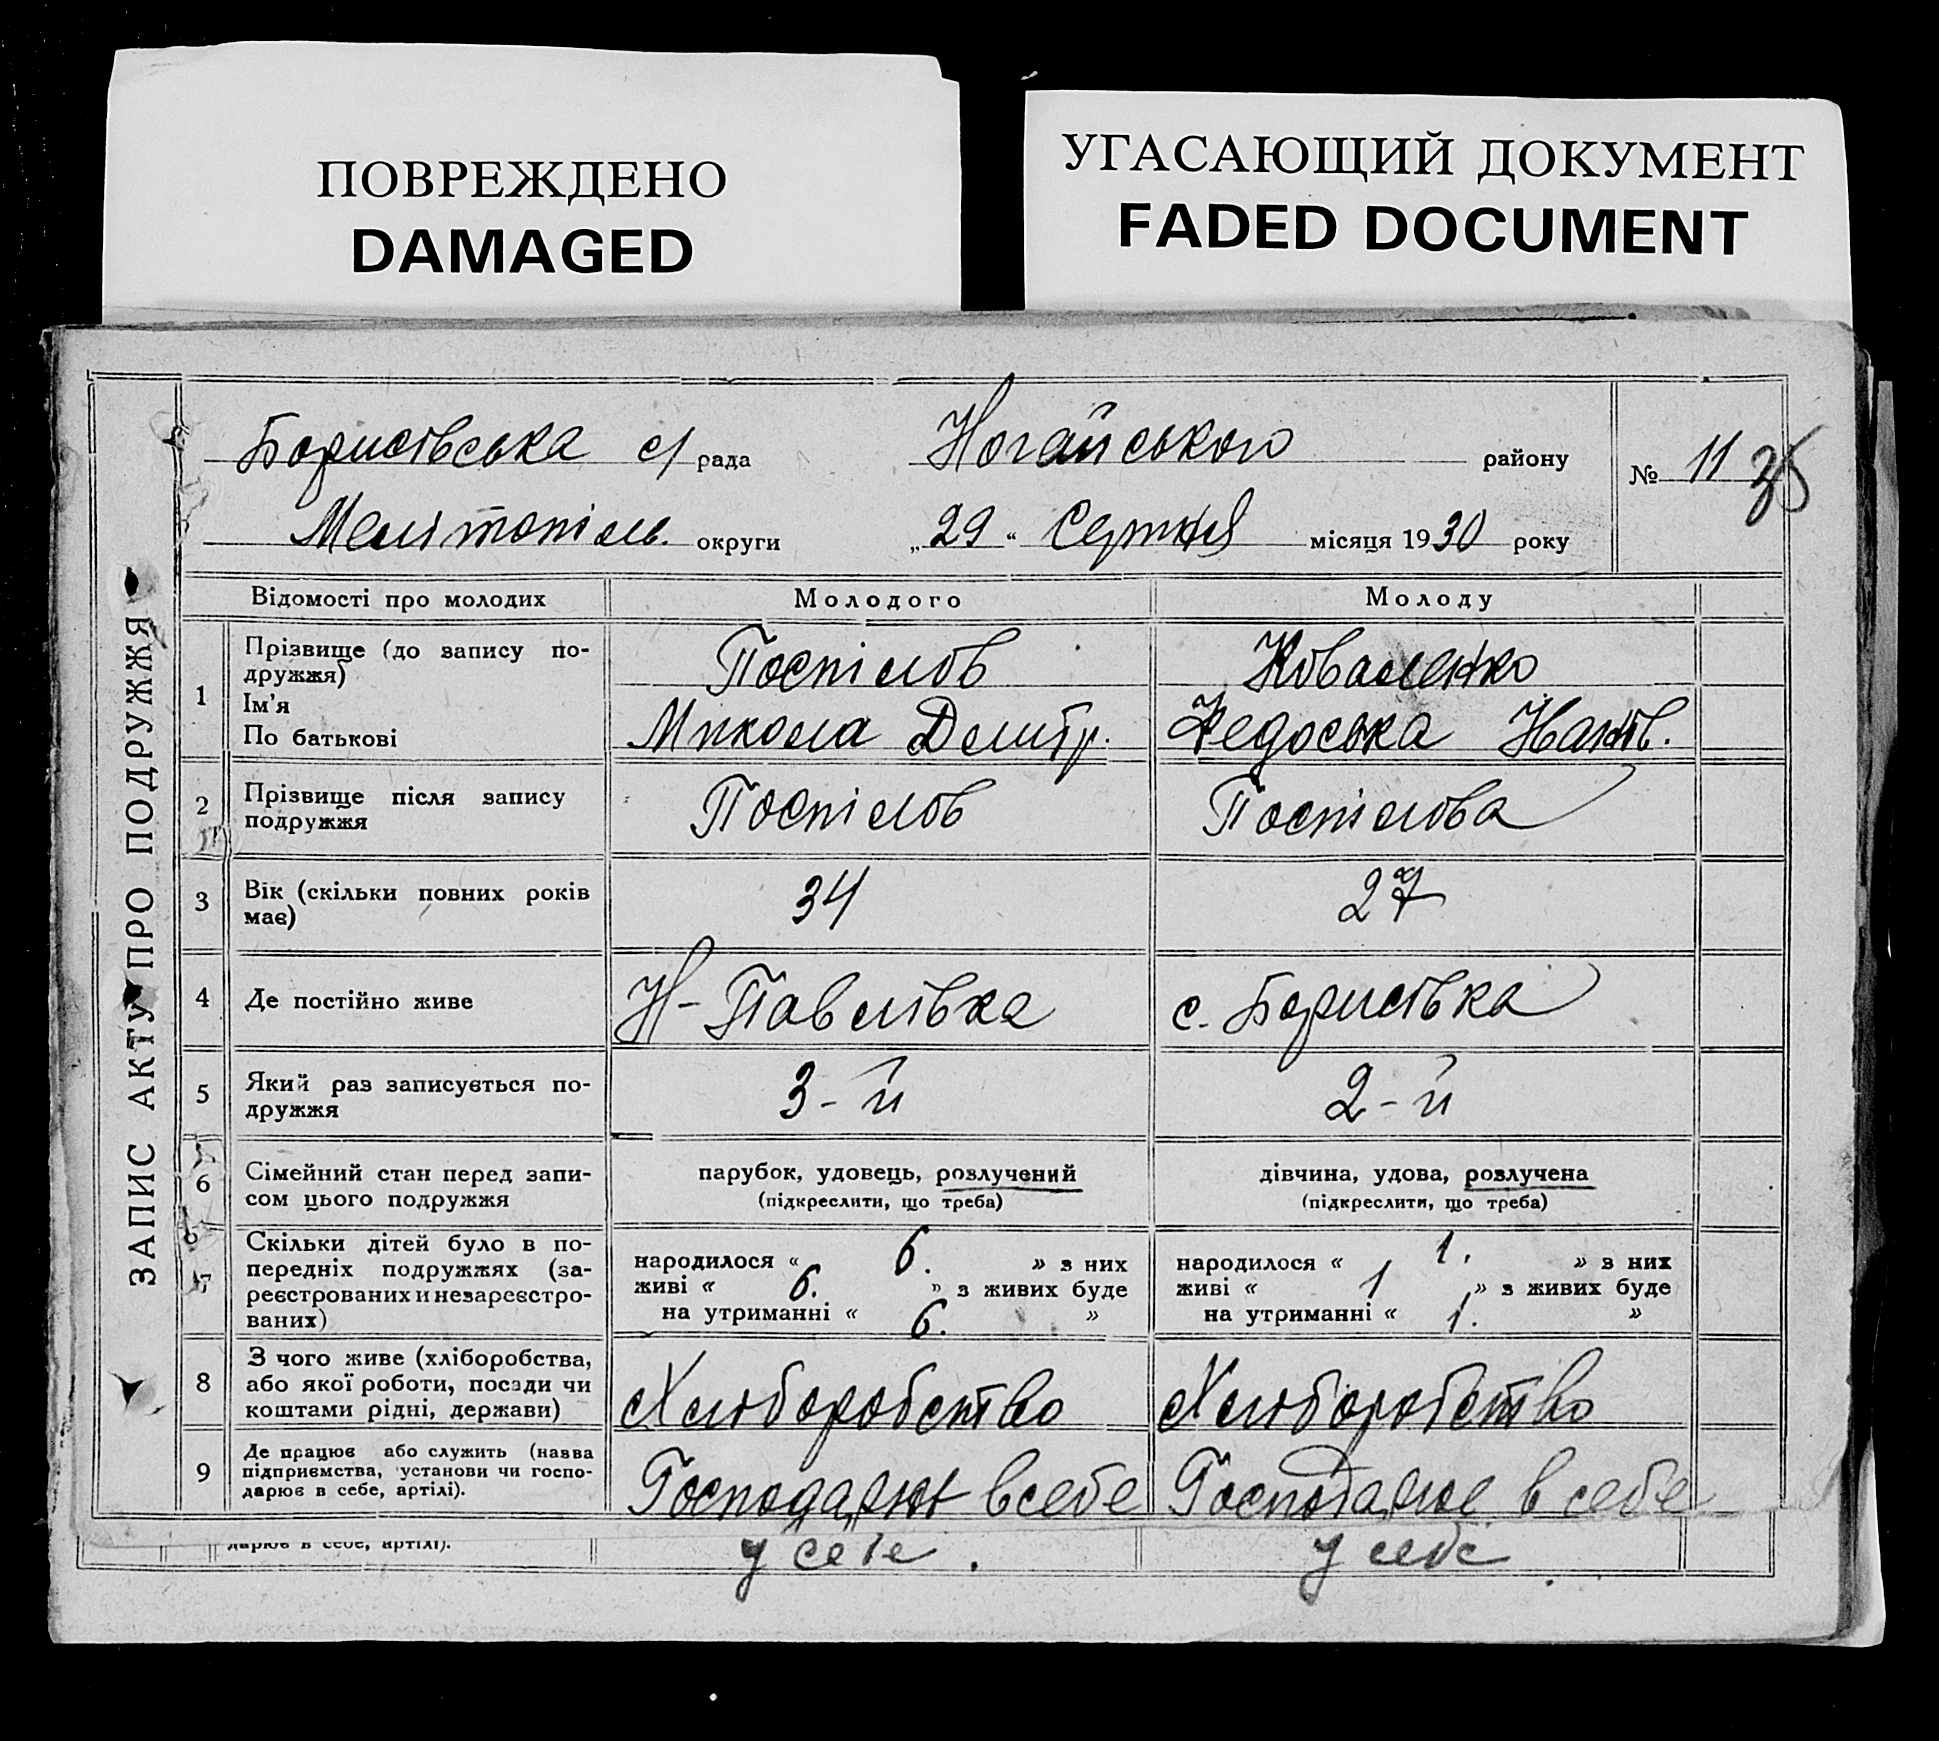 ПОВРЕЖДЕНО
DAMAGED
УГАСАЮЩИЙ ДОКУМЕНТ
FADED DOCUMENT
ЗАПИС АКТУ ПРО ПОДРУЖЖЯ
Борисівська с/рада Ногайського району
№ 11 35
Мелітопіль. округи „29“ Серпня місяця 1930 року
Відомості про молодих Молодого Молоду
1
Прізвище (до запису по-
дружжя)
Ім’я
По батькові
Поспілов
Микола Дмитр.
Коваленко
Федоська
2
Прізвище після запису
подружжя
Поспілов
Поспілова
3
Вік (скільки повних років
має)
34
27
4
Де постійно живе
Н-Павлівка
с. Борисівка
5
Який раз записується по-
дружжя
3-й
2-й
6
Сімейний стан перед запи-
сом цього подружжя
парубок, удовець, розлучений
(підкреслити, що треба)
дівчина, удова, розлучена
(підкреслити, що треба)
7
Скільки дітей було в по-
передніх подружжях (за-
реєстрованих и незареєстро-
ваних)
народилося « 6. » з них
живі « 6. » з живих буде
на утриманні « 6. »
народилося « 1. » з них
живі « 1 » з живих буде
на утриманні « 1. »
8
З чого живе (хліборобства,
або якої роботи, посади чи
коштами рідні, держави)
Хліборобство
Хліборобство
9
Де працює або служить (назва
підприємства, установи чи госпо-
дарює в себе, артілі).
Господарює в себе
Господарює в себе
дарює в себе, артілі).
у себе.
у себе